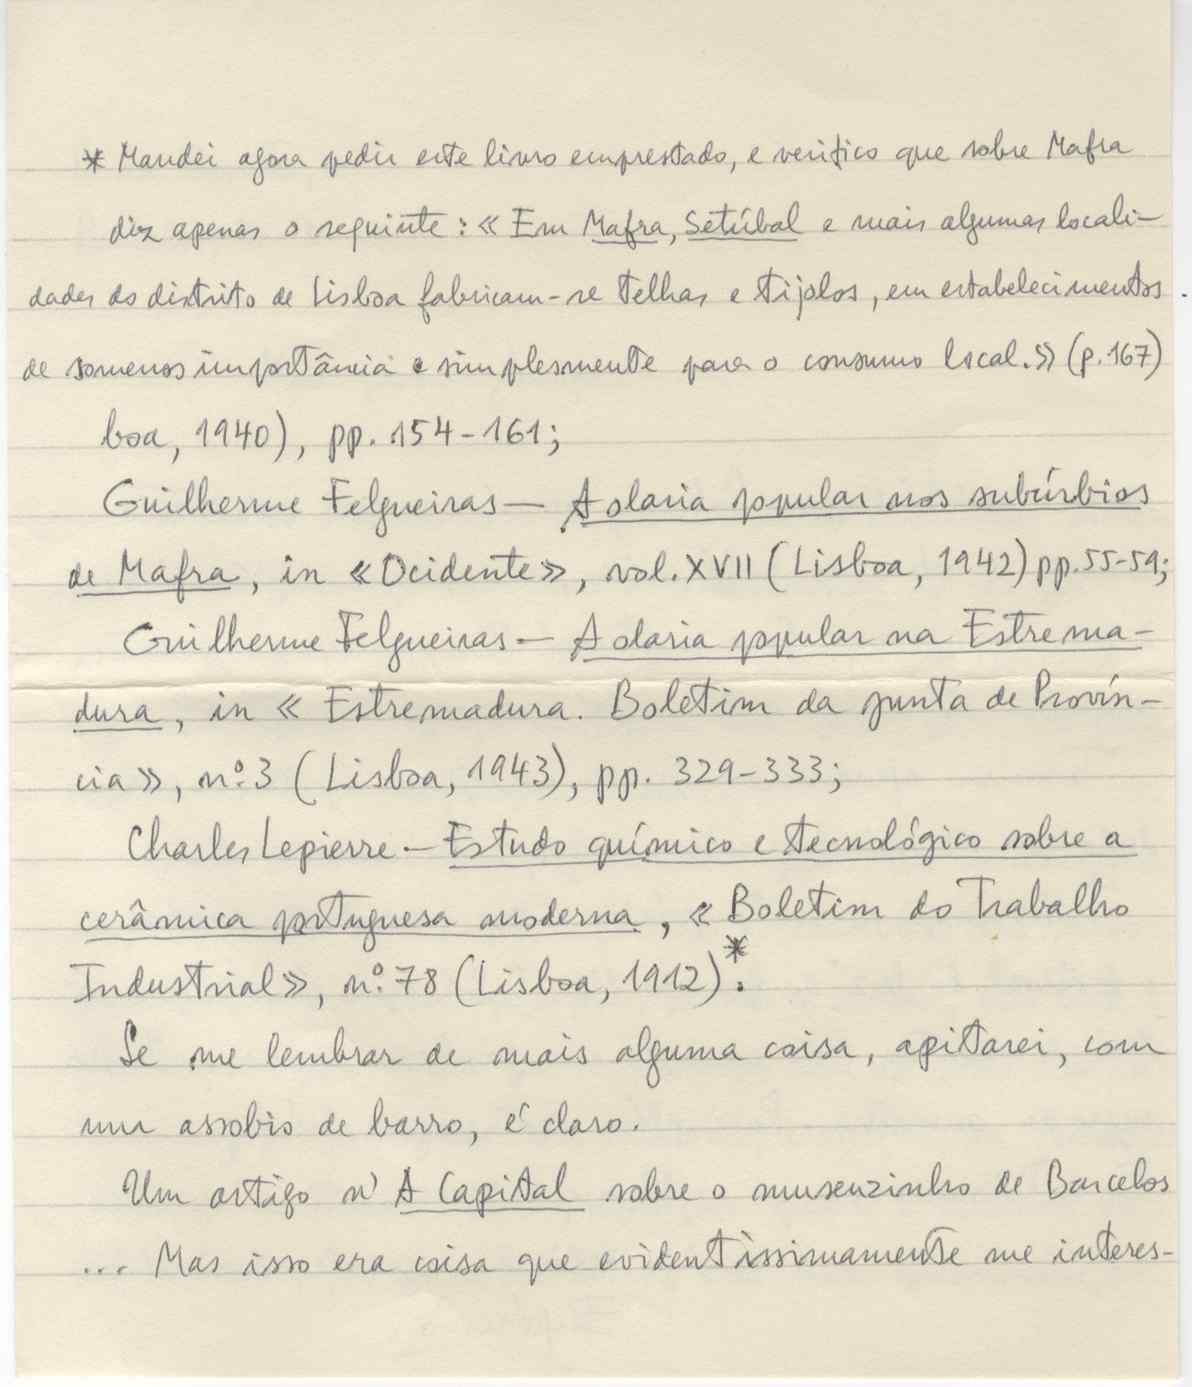 * Mandei agora pedir este livro emprestado, e verifico que sobre Mafra
diz apenas o seguinte: « Em Mafra, Setúbal e mais algumas locali-
dades do distrito de Lisboa fabricam-se telhas e tijolos, em estabelecimentos
de somenos importância e simplesmente para o consumo local.» (p. 167)
boa, 1940), pp. 154-161;
Guilherme Felgueiras — A olaria popular nos subúrbios
de Mafra, in «Ocidente», vol. XVII (Lisboa, 1942) pp. 55-59;
Guilherme Felgueiras — A olaria popular na Estrema-
dura, in « Estremadura. Boletim da Junta de Provín-
cia», nº. 3 (Lisboa, 1943), pp. 329-333;
Charles Lepierre — Estudo químico e tecnológico sobre a
cerâmica portuguesa moderna, « Boletim do Trabalho
Industrial», nº. 78 (Lisboa, 1912)*.
Se me lembrar de mais alguma coisa, apitarei, com
um assobio de barro, é claro.
Um artigo n' A Capital sobre o museuzinho de Barcelos
... Mas isso era coisa que evidentissimamente me interes-